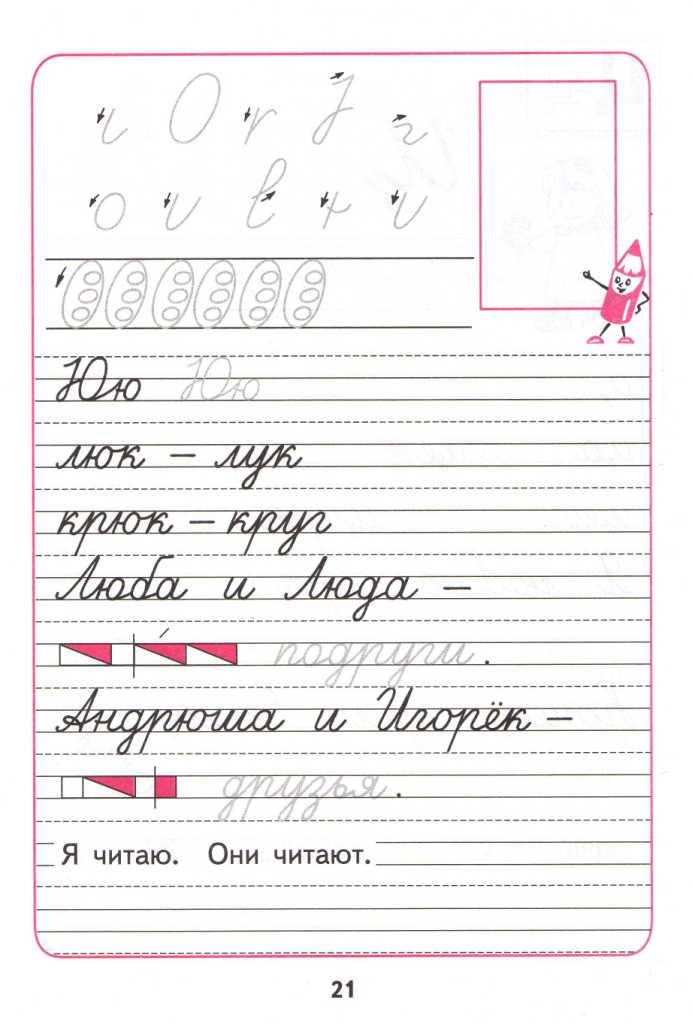 Юю Юю
люк – лук
крюк – круг
Люба и Люда –
подруги.
Андрюша и Игорёк –
друзья.
Я читаю. Они читают.
21